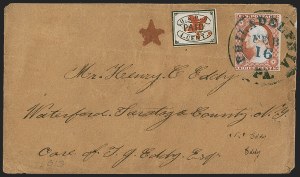 U.S.P.O.
PAID
1 CENT.
PHILADELPHIA
FEB
16
PA.
Mrs. Henry C. Eddy
Waterford, Saratoga County, N.Y.
Care of T. G. Eddy Esq
Eddy